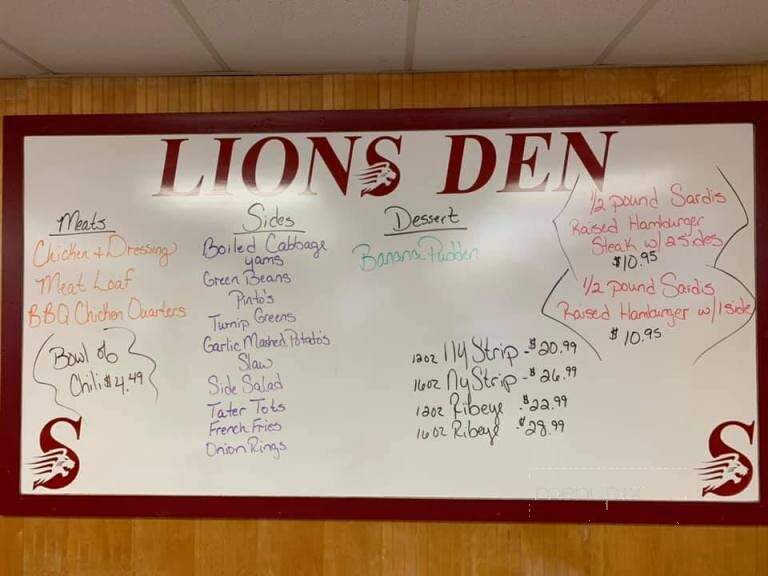 LIONS DEN
Meats
Chicken & Dressing
Meat Loaf
BBQ Chicken Quarters
Bowl of
Chili $4.49
Sides
Boiled Cabbage
yams
Green Beans
Pinto's
Turnip Greens
Garlic Mashed Potato's
Slaw
Side Salad
Tater Tots
French Fries
Onion Rings
Dessert
Banana Pudden
12oz Ny Strip - $20.99
16oz Ny Strip - $26.99
12oz Ribeye - $22.99
16oz Ribeye - $28.99
1/2 pound Sardis
Raised Hamburger
Steak w/ 2 sides
$10.95
1/2 pound Sardis
Raised Hamburger w/ 1 side
$10.95
S
S